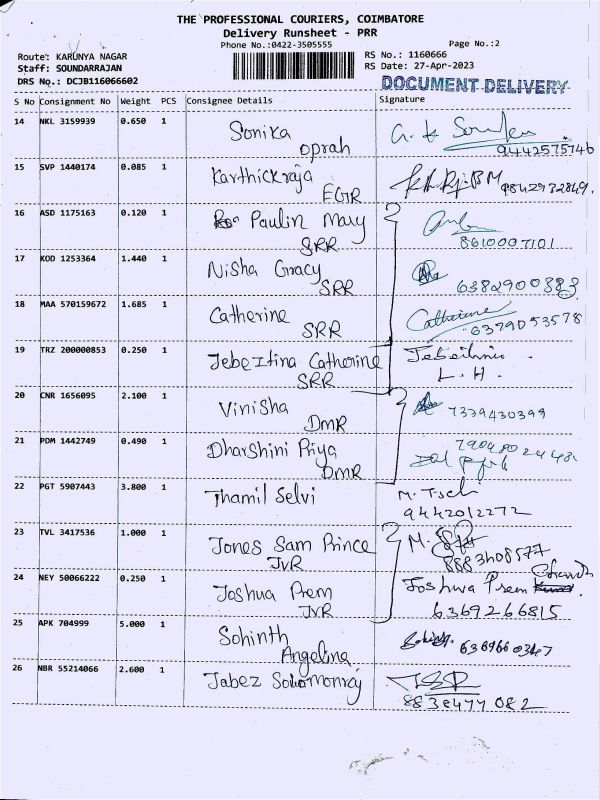 THE PROFESSIONAL COURIERS, COIMBATORE
Delivery Runsheet - PRR
Phone No.:0422-3505555
Page No.:2
Route: KARUNYA NAGAR
RS No.: 1160666
Staff: SOUNDARRAJAN
RS Date: 27-Apr-2023
DRS No.: DCJB116066602
DOCUMENT DELIVERY
S No Consignment No Weight PCS Consignee Details Signature
14 NKL 3159939 0.650 1 Sonika
oprah 9442575746
15 SVP 1440174 0.085 1 Karthickraja
EGR 9842932849.
16 ASD 1175163 0.120 1 Paulin Mary
SRR 8610007101
17 KOD 1253364 1.440 1 Nisha Gracy
SRR 6382900883
18 MAA 570159672 1.685 1 Catherine Catherine
SRR 6379053578
19 TRZ 200000853 0.250 1 Jebeltina Catherine
SRR L.H.
20 CNR 1656095 2.100 1 Vinisha 7339430399
DMR
21 PDM 1442749 0.490 1 Dharshini Priya
DMR
22 PGT 5907443 3.800 1 Thamil Selvi
9442012272
23 TVL 3417536 1.000 1 Jones Sam Prince
JVR 8883408577
24 NEY 50066222 0.250 1 Joshua Prem Joshua Prem
JVR 6369266815
25 APK 704999 5.000 1 Sohinth
Angelina
26 NBR 55214066 2.600 1 Jabez
8838477082